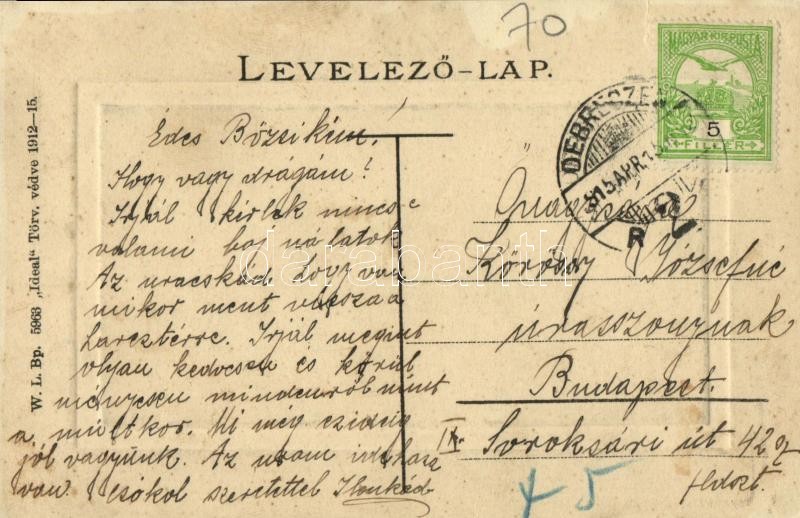 70
LEVELEZŐ-LAP.
MAGYAR KIR. POSTA
5
FILLÉR
DEBRECZEN
915 APR. 1
R
W. L. Bp. 5963 „Ideal“ Törv. védve 1912—15.
Édes Bözsikém!
Hogy vagy drágám?
Irjál kérlek nincs-e
valami baj nálatok.
Az uracskád hogy van
mikor ment vissza a
harcztérre. Irjál megint
olyan kedvesen és körül
ményesen mindenről mint
a multkor. Mi még ezideig
jól vagyunk. Az uram itthon
van. Csókol szeretettel Ilonkád
Nagysága
Kőrössy Józsefné
úrasszonynak
Budapest.
IX. Soroksári út 42
földszt.
45
darabanth